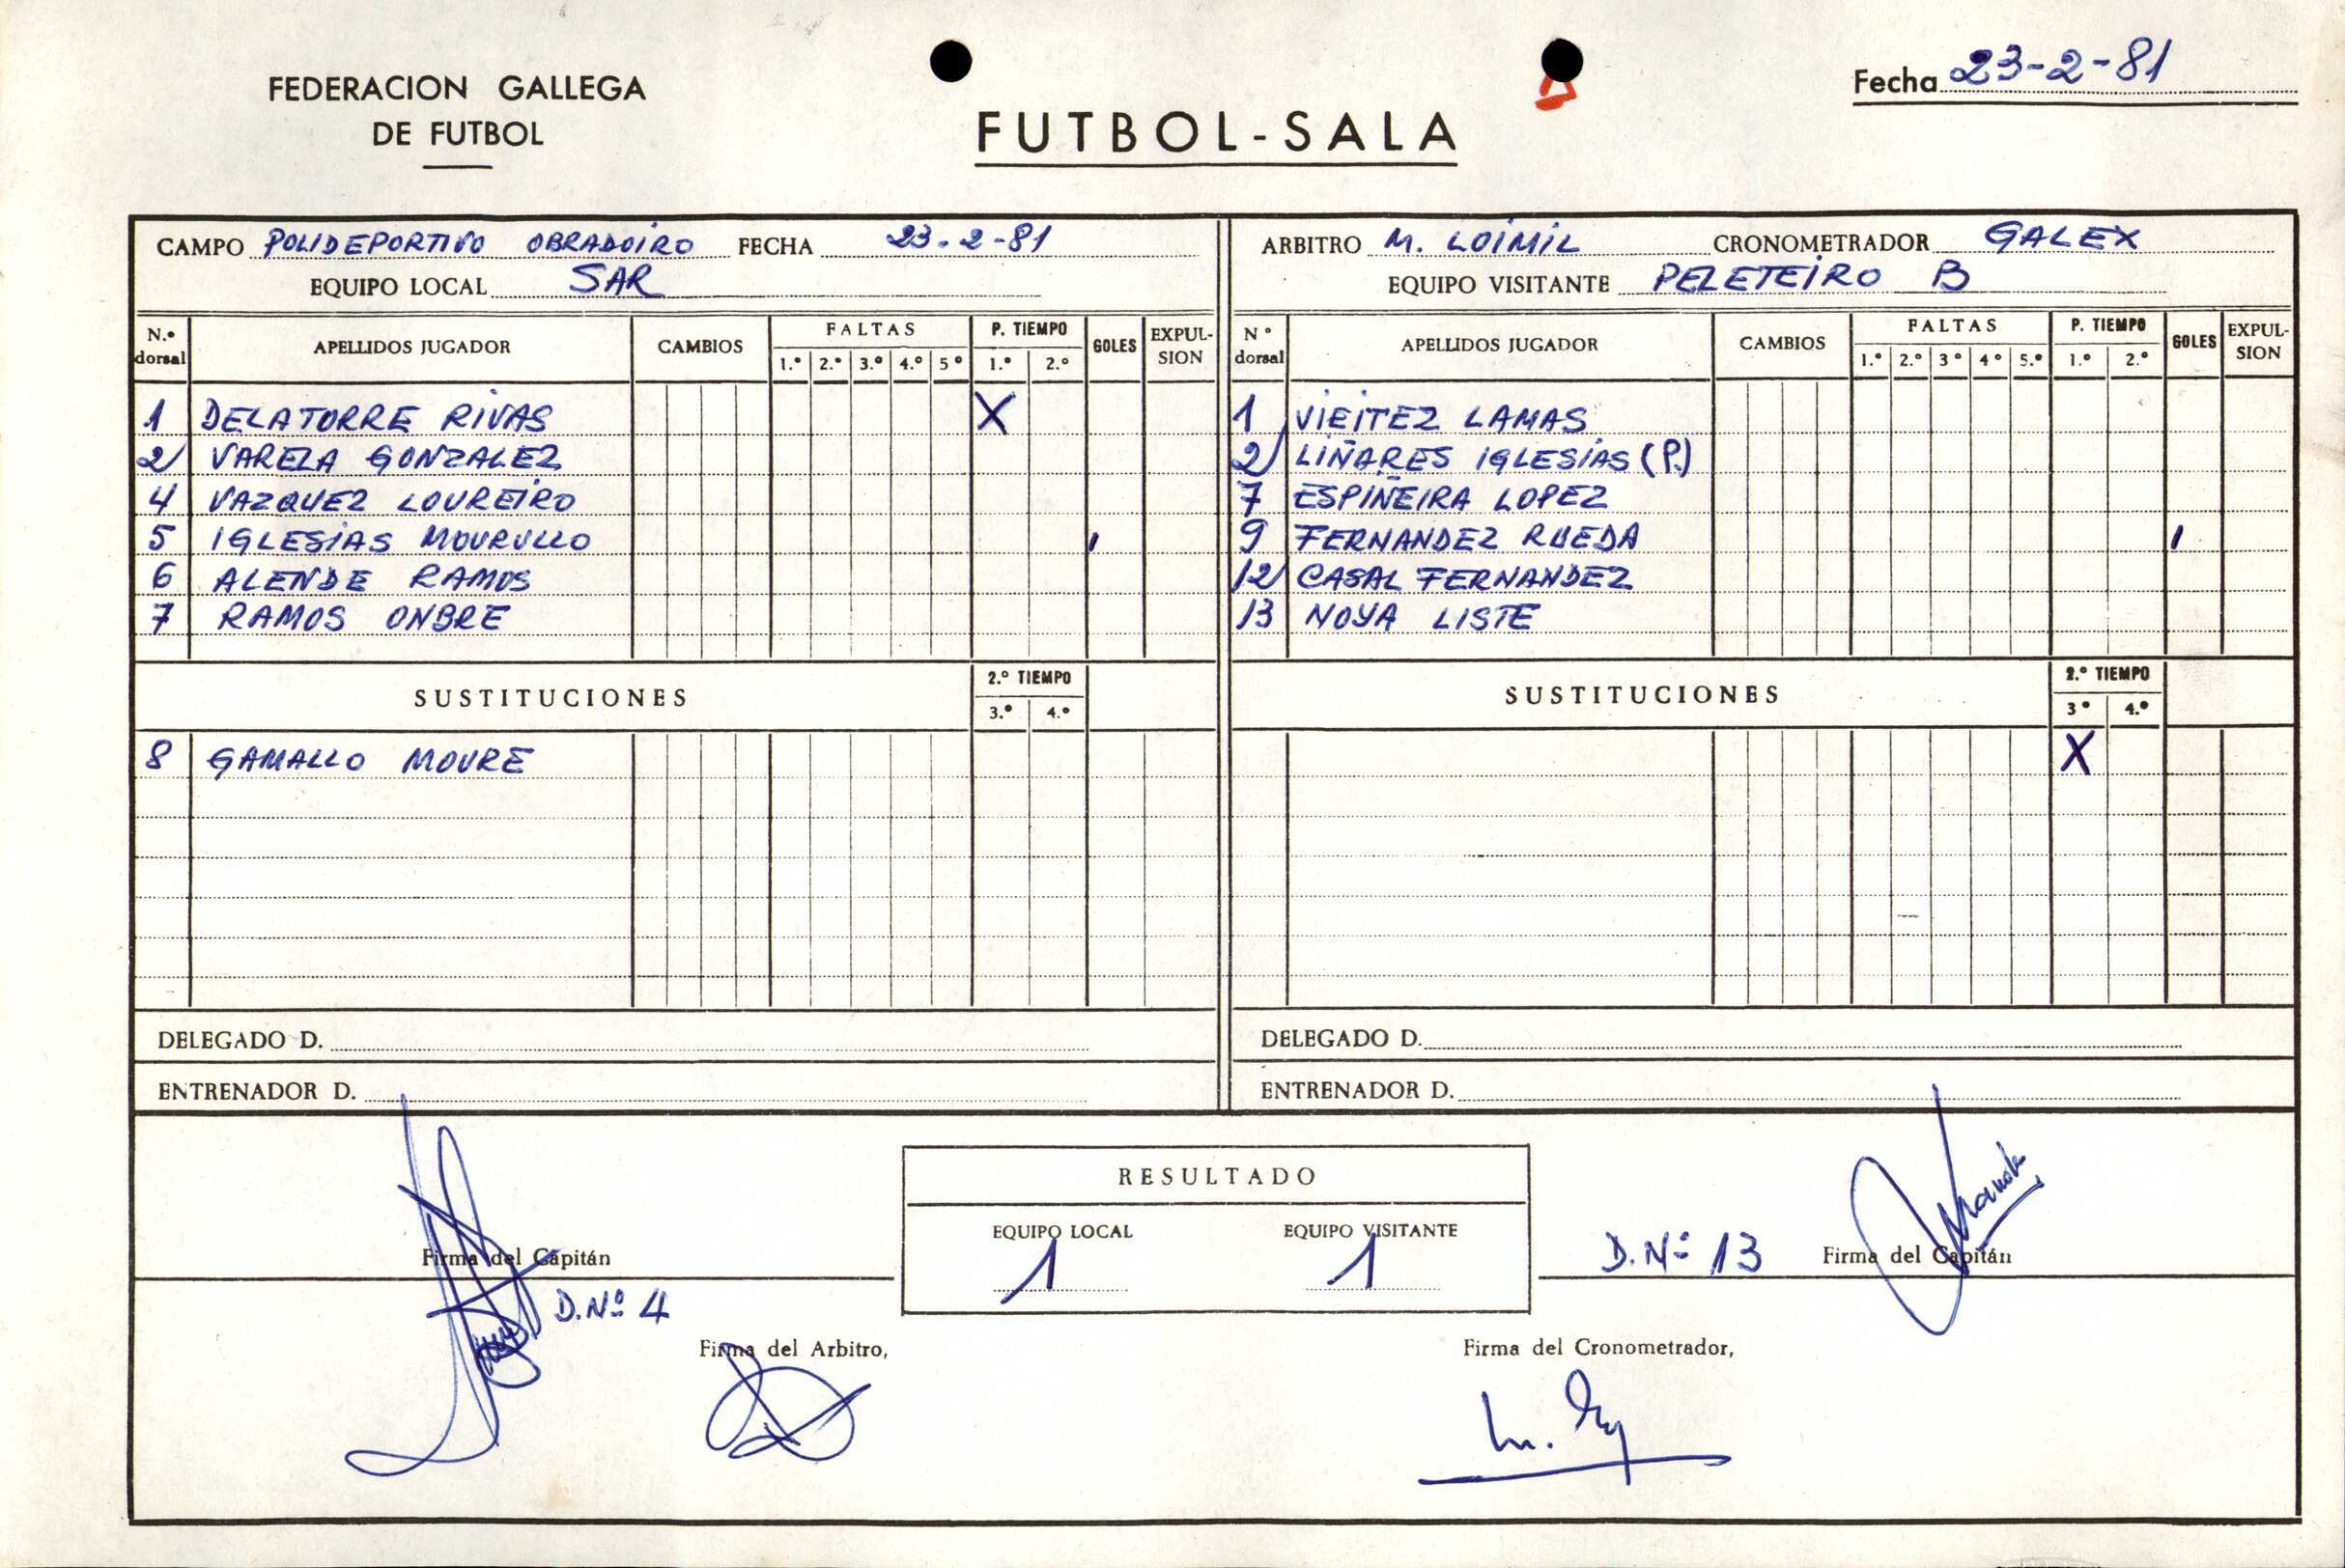 FEDERACION GALLEGA
DE FUTBOL
FUTBOL-SALA
Fecha 23-2-81
CAMPO POLIDEPORTIVO OBRADOIRO FECHA 23-2-81
EQUIPO LOCAL SAR
N.º dorsal APELLIDOS JUGADOR CAMBIOS FALTAS 1.º 2.º 3.º 4.º 5º P. TIEMPO 1.º 2.º GOLES EXPULSION
1 DELATORRE RIVAS X
2 VARELA GONZALEZ
4 VAZQUEZ LOUREIRO
5 IGLESIAS MOURULLO 1
6 ALENDE RAMOS
7 RAMOS ONBRE
SUSTITUCIONES 2.º TIEMPO 3.º 4.º
8 GAMALLO MOURE
DELEGADO D.
ENTRENADOR D.
ARBITRO M. LOIMIL CRONOMETRADOR GALEX
EQUIPO VISITANTE PELETEIRO B
Nº dorsal APELLIDOS JUGADOR CAMBIOS FALTAS 1.º 2.º 3º 4º 5.º P. TIEMPO 1.º 2.º GOLES EXPULSION
1 VIEITEZ LAMAS
2 LIÑARES IGLESIAS (P.)
7 ESPIÑEIRA LOPEZ
9 FERNANDEZ RUEDA 1
12 CASAL FERNANDEZ
13 NOYA LISTE
SUSTITUCIONES 2.º TIEMPO 3º 4.º
X
DELEGADO D.
ENTRENADOR D.
RESULTADO
EQUIPO LOCAL EQUIPO VISITANTE
1 1
Firma del Capitán
D. Nº 4
D. Nº 13 Firma del Capitán
Firma del Arbitro,
Firma del Cronometrador,